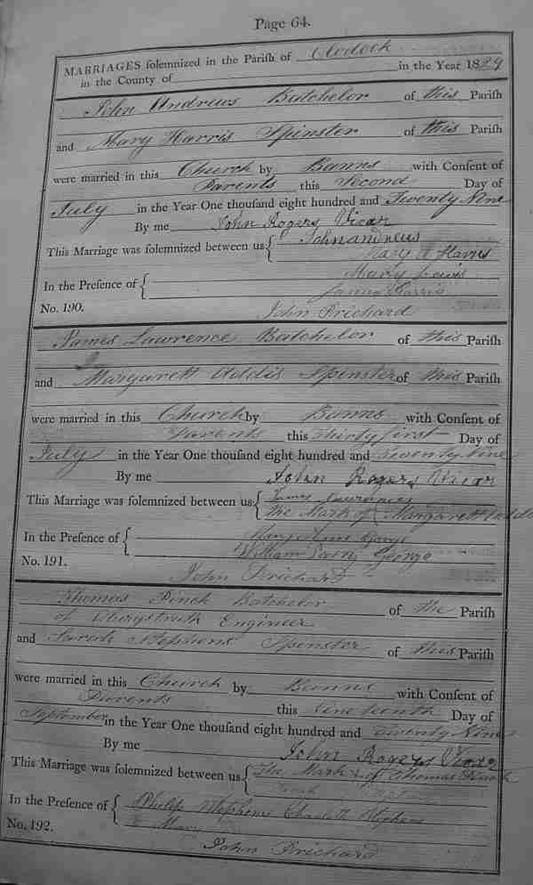 Page 64.
MARRIAGES solemnized in the Parish of Clodock
in the County of in the Year 1829
John Andrews Batchelor of this Parish
and Mary Harris Spinster of this Parish
were married in this Church by Banns with Consent of
Parents this Second Day of
July in the Year One thousand eight hundred and Twenty Nine
By me John Rogers Vicar
This Marriage was solemnized between us John andrews
Mary Harris
In the Presence of Mary Lewis
James Harris
No. 190. John Prichard
James Lawrence Batchelor of this Parish
and Margarett Addis Spinster of this Parish
were married in this Church by Banns with Consent of
Parents this Thirty first Day of
July in the Year One thousand eight hundred and Twenty Nine
By me John Rogers Vicar
This Marriage was solemnized between us James Lawrence
The Mark of Margarett Addis
In the Presence of
William George
No. 191. John Prichard
Thomas Pinch Batchelor of the Parish
of Engineer
and Sarah Stephens Spinster of this Parish
were married in this Church by Banns with Consent of
Parents this Day of
September in the Year One thousand eight hundred and Twenty Nine
By me John Rogers Vicar
This Marriage was solemnized between us The Mark of Thomas Pinch
In the Presence of Philip Stephens Stephens
Mary
No. 192. John Prichard